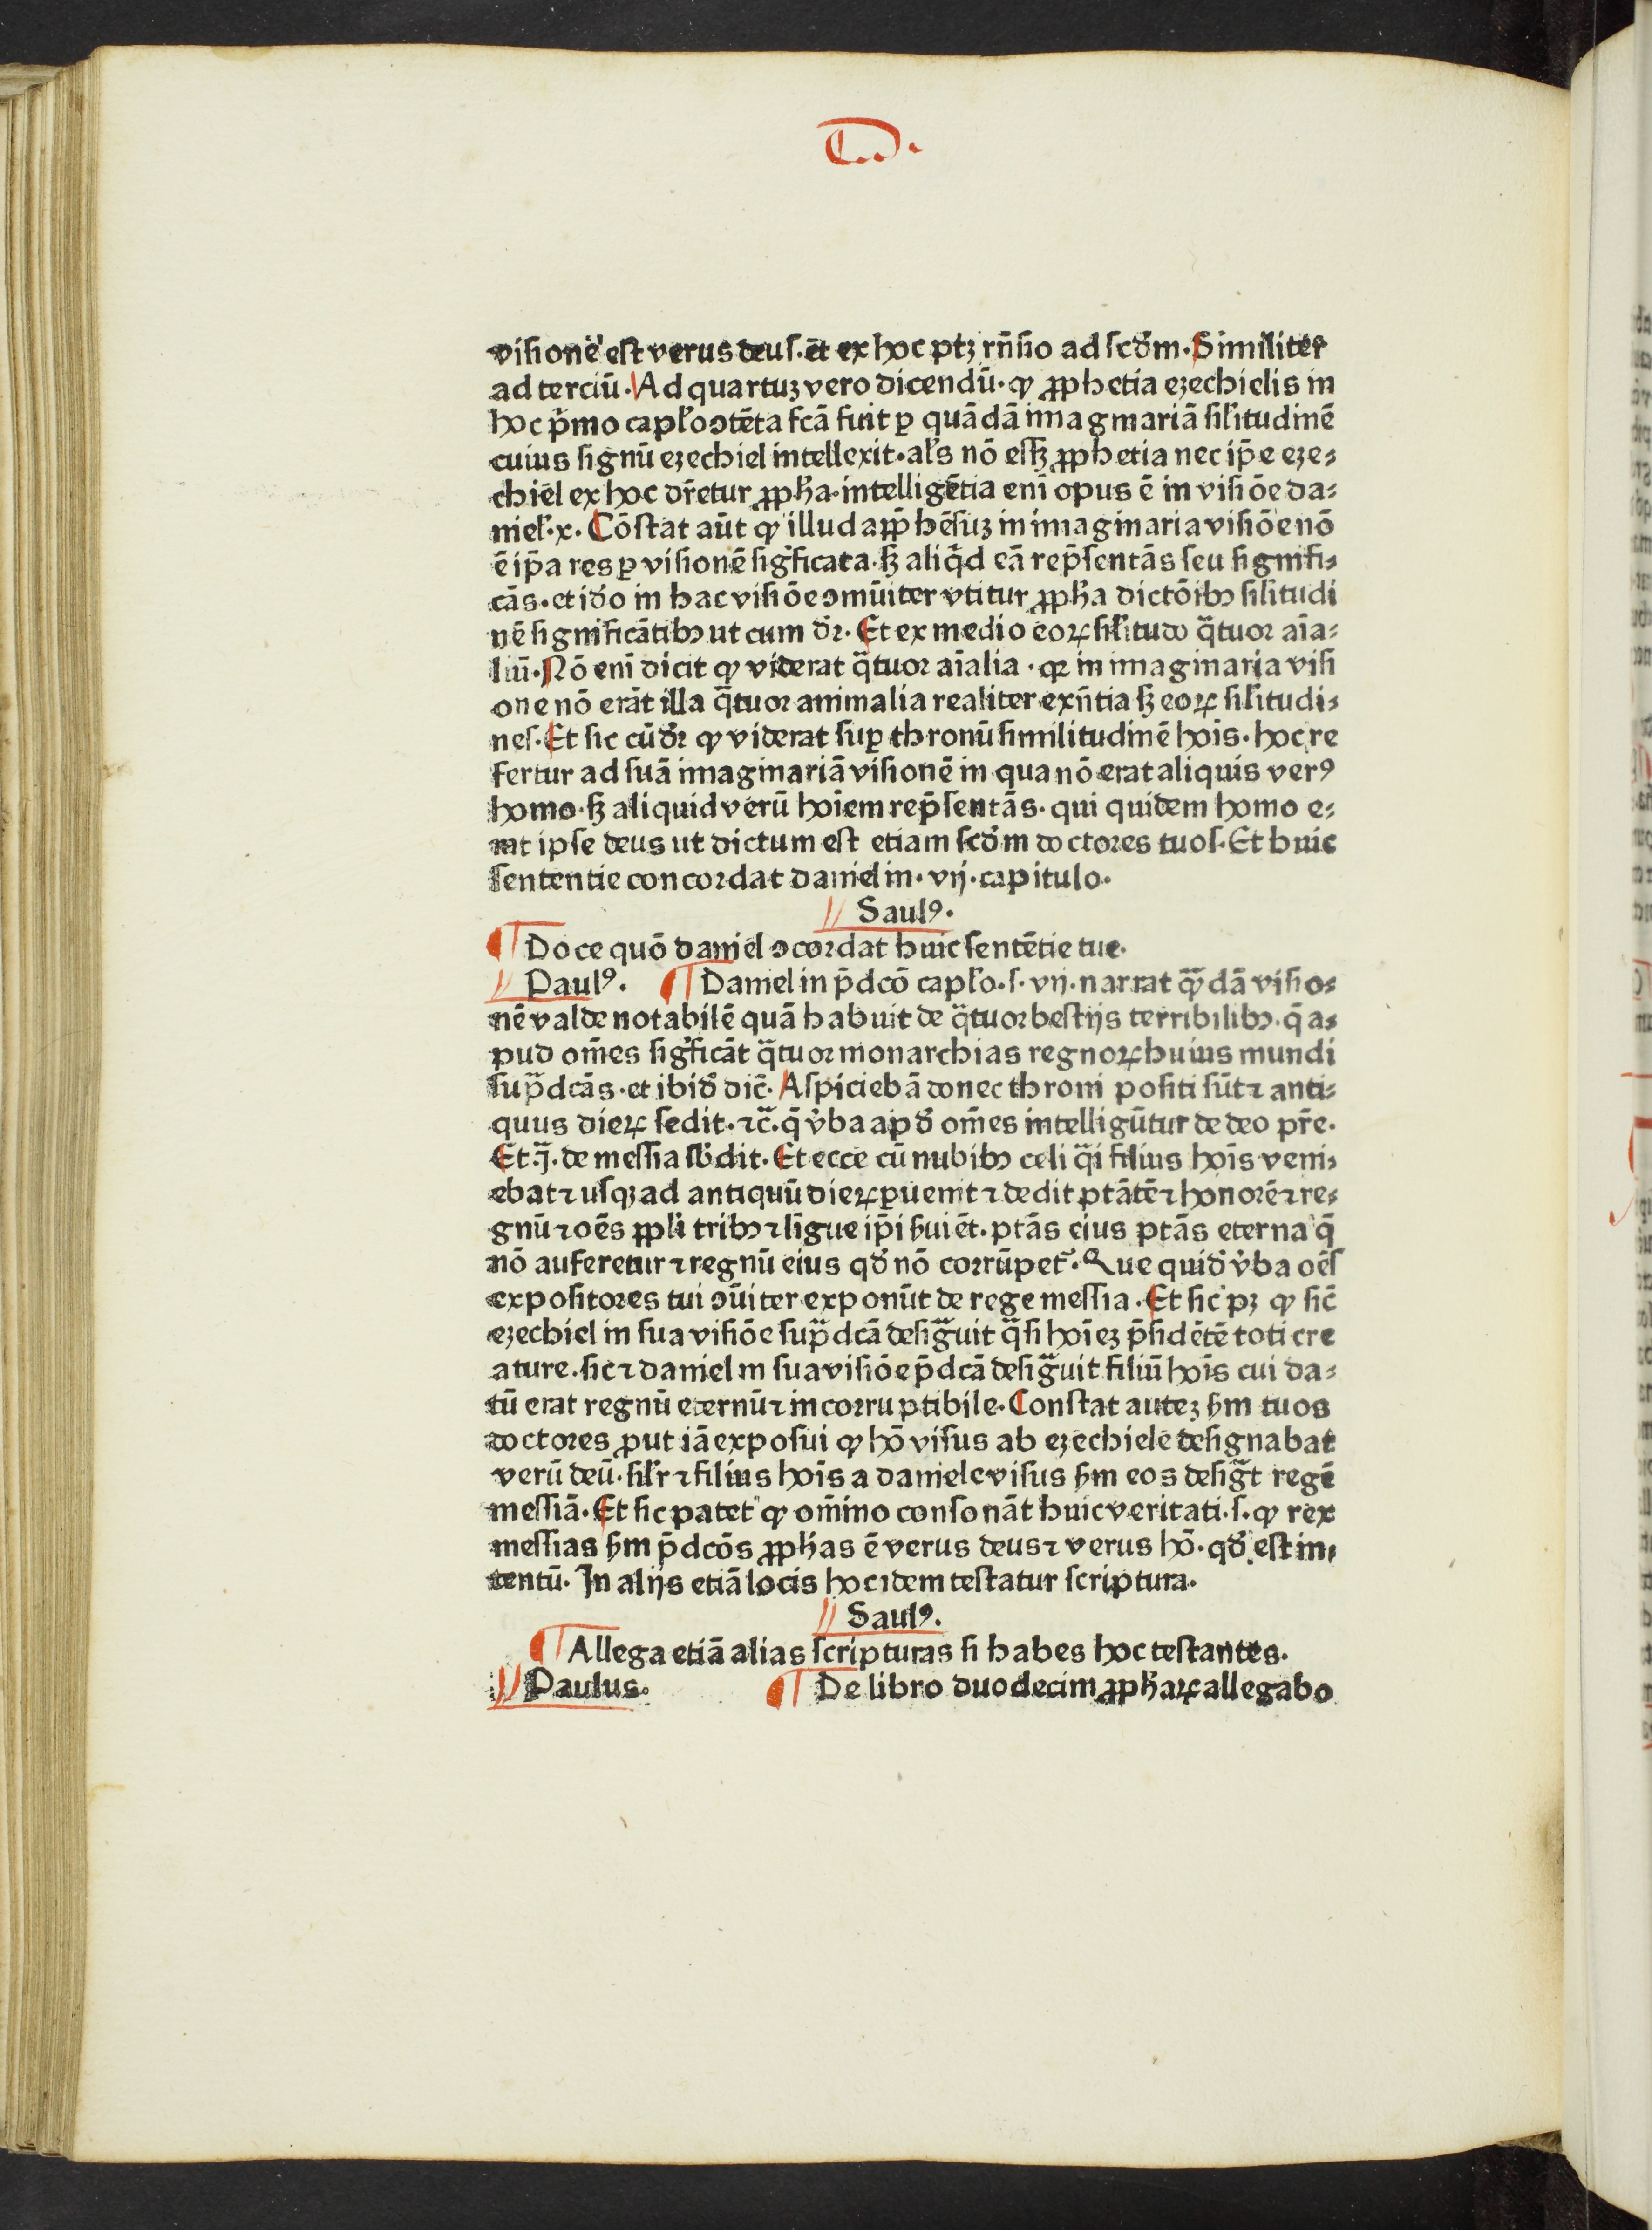 visionē est verus deus. et ex hoc ptꝫ rñsio ad scđm. Similiter
ad terciū. Ad quartuꝫ vero dicendū. ꝙ ꝓphetia eꝫechielis in
hoc p̄mo caplo ↄtēta fcā fuit ꝑ quādā imaginariā silitudinē
cuius signū eꝫechiel intellexit. als nō esſꝫ ꝓphetia nec ip̄e eꝫe⸗
chiel ex hoc dr̄etur ꝓpha. intelligētia enī opus ē in visiōe da⸗
niel. x. Cōstat aūt ꝙ illud app̄hēsuꝫ in imaginaria visiōe nō
ē ip̄a res ꝑ visionē sigficata. sꝫ aliqd eā rep̄sentās seu signifi⸗
cās. et iđo in hac visiōe ↄmūiter vtitur ꝓpha dictōibꝰ silitudi
nē significātibꝰ ut cum đr. Et ex medio eoꝝ silitudo q̄tuor aīa⸗
liū. Nō enī dicit ꝙ viderat q̄tuor aīalia. qꝛ in imaginaria visi
one nō erāt illa q̄tuor animalia realiter exn̄tia sꝫ eoꝝ silitudi⸗
nes. Et sic cū đr ꝙ viderat suꝑ thronū similitudinē hoīs. hoc re
fertur ad suā imaginariā visionē in qua nō erat aliquis verꝰ
homo. sꝫ aliquid verū hoīem rep̄sentās. qui quidem homo e⸗
rat ipse deus ut dictum est etiam scđm doctores tuos. Et huic
sententie concordat daniel in. vij. capitulo.
Saulꝰ.
¶ Doce quō daniel ↄcordat huic sentētie tue.
Paulꝰ. ¶ Daniel in p̄dcō caplo. s. vij. narrat q̄dā visio⸗
nē valde notabilē quā habuit de q̄tuor bestijs terribilibꝰ. q̄ a⸗
pud om̄es sigficāt q̄tuor monarchias regnoꝝ huius mundi
sup̄dcās. et ibiđ dic̄. Aspiciebā donec throni positi sūt ⁊ anti⸗
quus dieꝝ sedit. ⁊c̄. q̄ v̄ba apđ om̄es intelligūtur de deo pr̄e.
Et ꝗ̄. de messia sb̄dit. Et ecce cū nubibꝰ celi q̄i filius hoīs veni⸗
ebat ⁊ usqꝫ ad antiquū dieꝝ ꝑuenit ⁊ dedit ptātē ⁊ honorē ⁊ re⸗
gnū ⁊ oēs ppli tribꝰ ⁊ līgue ip̄i ẜuiēt. ptās eius ptās eterna q̄
nō auferetur ⁊ regnū eius qđ nō corrūpet̄. Que quiđ v̄ba oēs
expositores tui ↄūiter exponūt de rege messia. Et sic pꝫ ꝙ sic̄
eꝫechiel in sua visiōe sup̄dcā desiḡuit q̄si hoīeꝫ p̄sidētē toti cre
ature. sic ⁊ daniel in sua visiōe p̄dcā desiḡuit filiū hoīs cui da⸗
tū erat regnū eternū ⁊ incorruptibile. Constat auteꝫ ẜm tuos
doctores ꝓut iā exposui ꝙ hō visus ab eꝫechiele designabat
verū deū. silr ⁊ filius hoīs a daniele visus ẜm eos desiḡt regē
messiā. Et sic patet ꝙ om̄ino consonāt huic veritati. s. ꝙ rex
messias ẜm p̄dcōs ꝓphas ē verus deus ⁊ verus hō. qđ est in⸗
tentū. In alijs etiā locis hoc idem testatur scriptura.
Saulꝰ.
¶ Allega etiā alias scripturas si habes hoc testantes.
Paulus. ¶ De libro duodecim ꝓphaꝝ allegabo